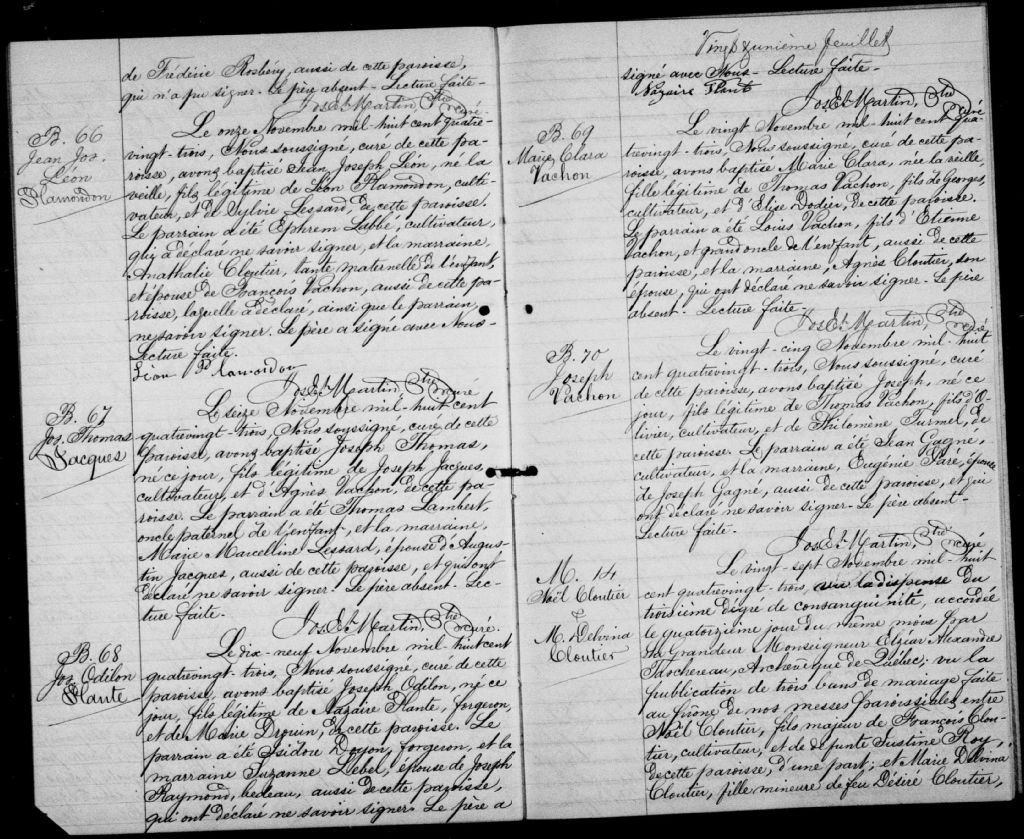 de Frédéric Rosbéry, aussi de cette paroisse,
qui n'a pu signer. Le père absent - Lecture faite -
Jos. Et. Martin, Ptre curé.
B. 66
Jean Jos.
Léon
Plamondon
Le onze Novembre mil-huit cent quatre-
vingt-trois, Nous soussigné, curé de cette pa-
roisse, avons baptisé Jean Joseph Léon, né la
veille, fils légitime de Léon Plamondon, culti-
vateur, et de Sylvie Lessard, de cette paroisse.
Le parrain a été Ephrem Labbé, cultivateur,
qui a déclaré ne savoir signer, et la marraine,
Anathalie Cloutier, tante maternelle de l'enfant,
et épouse de François Vachon, aussi de cette pa-
roisse, laquelle a déclaré, ainsi que le parrain,
ne savoir signer. Le père a signé avec Nous -
Lecture faite.
Léon Plamondon
Jos. Et. Martin, Ptre curé
B. 67
Jos. Thomas
Jacques
Le seize Novembre mil-huit cent
quatrevingt-trois, Nous soussigné, curé de cette
paroisse, avons baptisé Joseph Thomas,
né ce jour, fils légitime de Joseph Jacques,
cultivateur, et d'Agnès Vachon, de cette pa-
roisse. Le parrain a été Thomas Lambert,
oncle paternel de l'enfant, et la marraine,
Marie Marcelline Lessard, épouse d'Augus-
tin Jacques, aussi de cette paroisse, et qui ont
déclaré ne savoir signer. Le père absent. Lec-
ture faite.
Jos. Et. Martin, Ptre curé.
B. 68
Jos. Odilon
Plante
Le dix-neuf Novembre mil-huit cent
quatrevingt-trois, Nous soussigné, curé de cette
paroisse, avons baptisé Joseph Odilon, né ce
jour, fils légitime de Nazaire Plante, forgeron,
et de Marie Drouin, de cette paroisse. Le
parrain a été Isidore Doyon, forgeron, et la
marraine Suzanne Lebel, épouse de Joseph
Raymond, bedeau, aussi de cette paroisse,
qui ont déclaré ne savoir signer. Le père a
Vingt-unième feuillet
signé avec Nous - Lecture faite -
Nazaire Plante
Jos. Et. Martin, Ptre curé
B. 69
Marie Clara
Vachon
Le vingt Novembre mil-huit cent qua-
trevingt-trois, Nous soussigné, curé de cette pa-
roisse, avons baptisé Marie Clara, née la veille,
fille légitime de Thomas Vachon, fils de Georges,
cultivateur, et d'Elise Dodier, de cette paroisse.
Le parrain a été Louis Vachon, fils d'Etienne
Vachon, et grand oncle de l'enfant, aussi de cette
paroisse, et la marraine, Agnès Cloutier, son
épouse, qui ont déclaré ne savoir signer - Le père
absent - Lecture faite.
Jos. Et. Martin, Ptre curé
B. 70
Joseph
Vachon
Le vingt-cinq Novembre mil-huit
cent quatrevingt-trois, Nous soussigné, curé
de cette paroisse, avons baptisé Joseph, né ce
jour, fils légitime de Thomas Vachon, fils d'O-
livier, cultivateur, et de Philomène Turmel, de
cette paroisse. Le parrain a été Jean Gagné,
cultivateur, et la marraine, Eugénie Paré, épouse
de Joseph Gagné, aussi de cette paroisse, et qui
ont déclaré ne savoir signer - Le père absent -
Lecture faite.
Jos. Et. Martin, Ptre curé
M. 14
Noël Cloutier
&
M. Delvina
Cloutier
Le vingt-sept Novembre mil-huit
cent quatrevingt-trois, vu la dispense du
troisième degré de consanguinité, accordée
le quatorzième jour du même mois par
Sa Grandeur Monseigneur Elzéar Alexandre
Taschereau, Archevêque de Québec; vu la
publication de trois bans de mariage faite
au prône de nos messes paroissiales entre
Noël Cloutier, fils majeur de François Clou-
tier, cultivateur, et de défunte Justine Roy,
de cette paroisse, d'une part; et Marie Delvina
Cloutier, fille mineure de feu Désiré Cloutier,